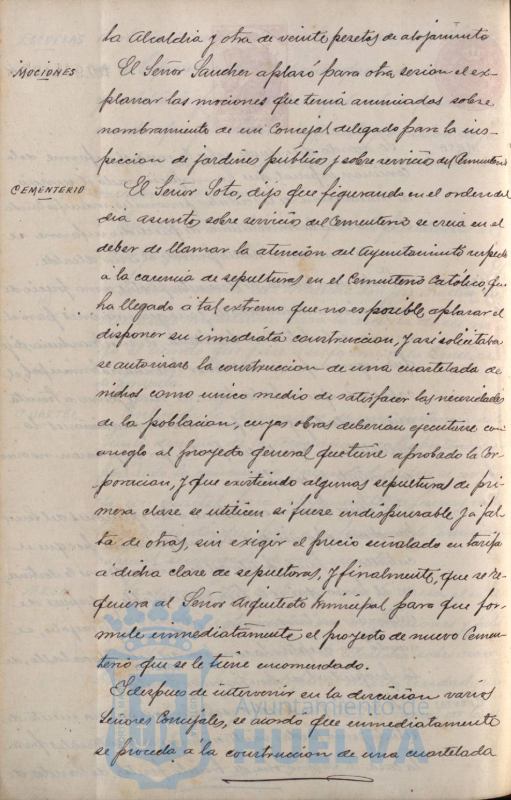 la Alcaldia y otra de veinte pesetas de alojamiento
MOCIONES
El Señor Sanchez aplazó para otra sesion el ex-
planar las mociones que tenia anunciadas sobre
nombramiento de un Concejal delegado para la ins-
peccion de jardines públicos y sobre servicio del Cementerio
CEMENTERIO
El Señor Soto, dijo que figurando en el orden del
dia asunto sobre servicio del Cementerio se creia en el
deber de llamar la atencion del Ayuntamiento respecto
á la carencia de sepulturas en el Cementerio Católico, que
ha llegado á tal extremo que no es posible aplazar el
disponer su inmediata construccion, y asi solicitaba
se autorizase la construccion de una cuartelada de
nichos como unico medio de satisfacer las necesidades
de la poblacion, cuyas obras deberian ejecutarse con
arreglo al proyecto general que tiene aprobado la Cor-
poracion, y que existiendo algunas sepulturas de pri-
mera clase se utilicen si fuese indispensable y á fal-
ta de otras, sin exigir el precio señalado en tarifa
á dicha clase de sepulturas, y finalmente, que se re-
quiera al Señor Arquitecto Municipal para que for-
mule inmediatamente el proyecto de nuevo Cemen-
terio que se le tiene encomendado.
Y despues de intervenir en la discusion varios
Señores Concejales, se acordo que inmediatamente
se proceda á la construccion de una cuartelada
Ayuntamiento de
HUELVA